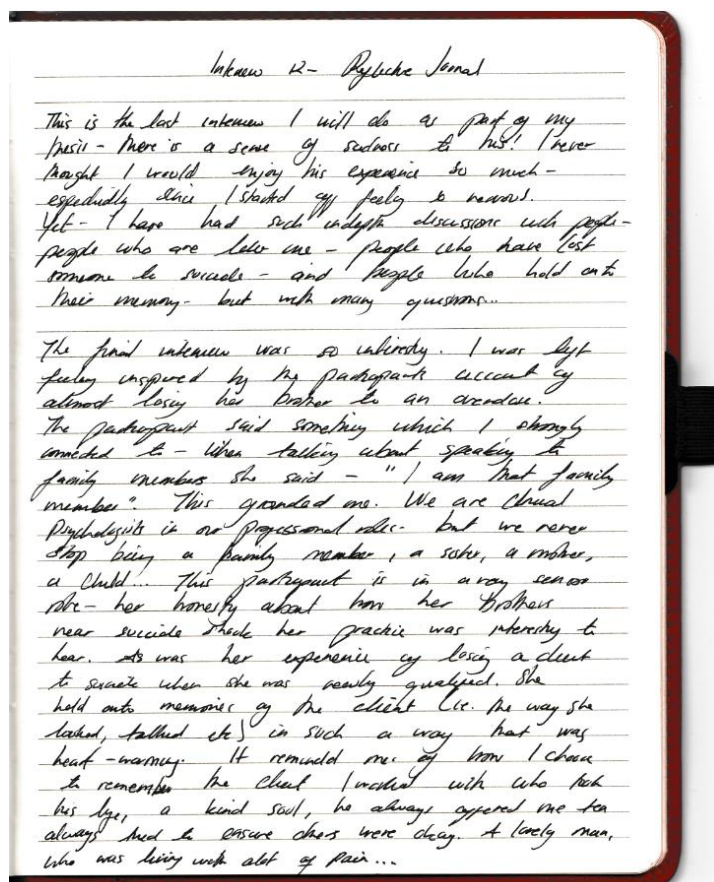 Interview 12 - Reflective Journal
This is the last interview I will do as part of my
thesis - there is a sense of sadness to this! I never
thought I would enjoy this experience so much -
especially since I started off feeling so nervous.
Yet - I have had such indepth discussions with people -
people who are like me - people who have lost
someone to suicide - and people who hold onto
their memory - but with many questions...
The final interview was so interesting. I was left
feeling inspired by the participants account of
almost losing her brother to an overdose.
The participant said something which I strongly
connected to - when talking about speaking to
family members she said - "I am that family
member". This grounded me. We are Clinical
Psychologists in our professional roles - but we never
stop being a family member, a sister, a mother,
a child... This participant is in a very senior
role - her honesty about how her brothers
near suicide shook her practice was interesting to
hear. As was her experience of losing a client
to suicide when she was newly qualified. She
held onto memories of the client (i.e. the way she
looked, talked etc) in such a way that was
heart-warming. It reminded me of how I chose
to remember the client I worked with who took
his life, a kind soul, he always offered me tea
always tried to ensure others were okay. A lovely man,
who was living with alot of pain...